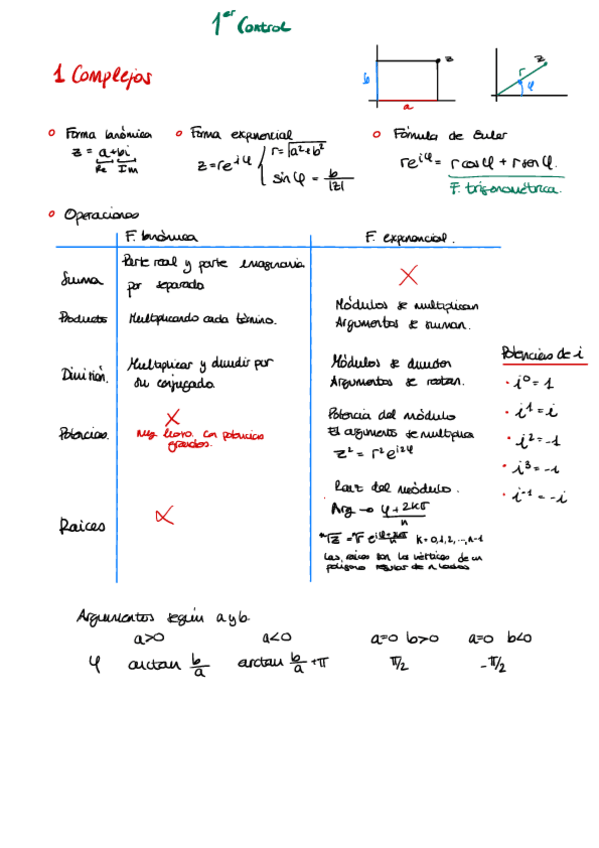 1er Control
1 Complejos
b
z
a
r
z
φ
• Forma binómica
z = a+bi
Re Im
• Forma exponencial
z=re^iφ
r=√a²+b²
sin φ = b/|z|
• Fórmula de Euler
re^iφ = r cos φ + r sen φ.
F. trigonométrica.
• Operaciones
F. binómica
F. exponencial.
Suma
Parte real y parte imaginaria
por separado
X
Producto
Multiplicando cada término.
Módulos se multiplican
Argumentos se suman.
División.
Multiplicar y dividir por
su conjugado.
Módulos se dividen
Argumentos se restan.
Potencias.
X
muy lioso con potencias
grandes.
Potencia del módulo
El argumento se multiplica
z² = r² e^i2φ
Raíces
X
Raíz del módulo.
Arg → φ+2kπ/n
ⁿ√z = ⁿ√r e^i(φ+2kπ)/n k=0,1,2,...,n-1
Las raíces son los vértices de un
polígono regular de n lados
Potencias de i
• i⁰ = 1
• i¹ = i
• i² = -1
• i³ = -i
• i⁻¹ = -i
Argumentos según a y b.
a>0 a<0 a=0 b>0 a=0 b<0
φ arctan b/a arctan b/a +π π/2 -π/2